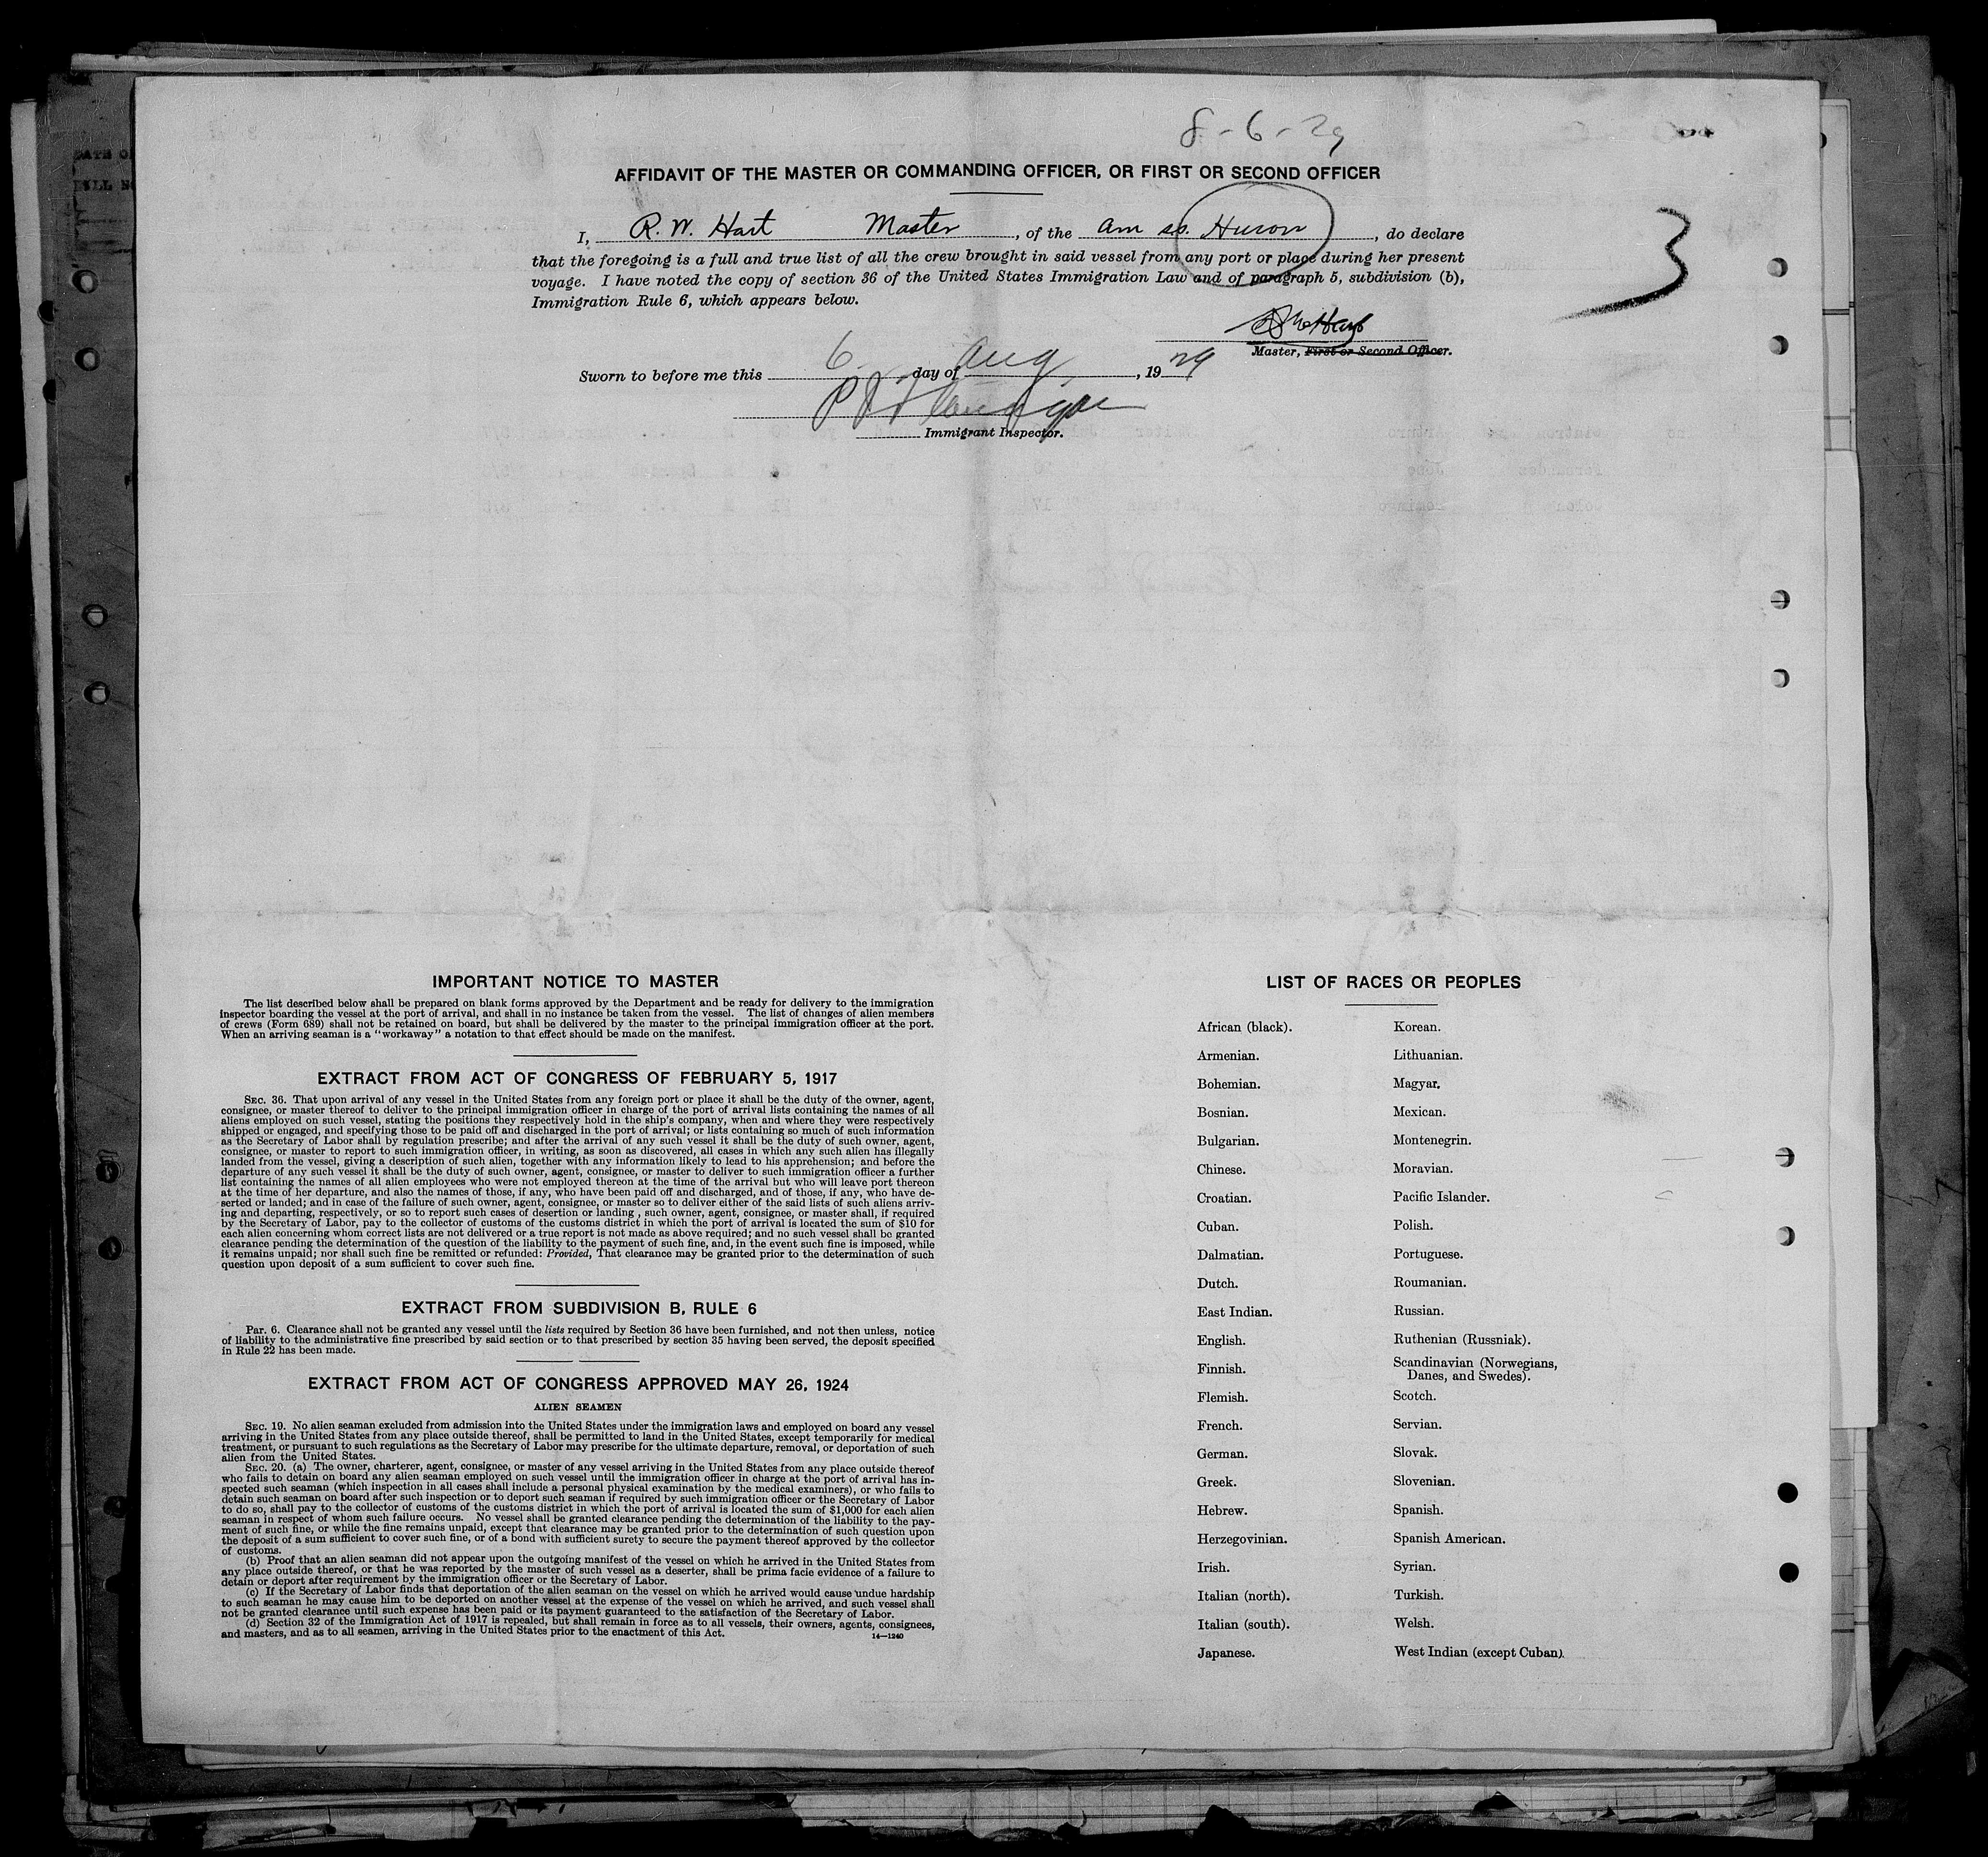 8-6-29
AFFIDAVIT OF THE MASTER OR COMMANDING OFFICER, OR FIRST OR SECOND OFFICER
I, R. W. Hart Master, of the Am ss. Huron, do declare
that the foregoing is a full and true list of all the crew brought in said vessel from any port or place during her present
voyage. I have noted the copy of section 36 of the United States Immigration Law and of paragraph 5, subdivision (b),
Immigration Rule 6, which appears below.
3
Master, First or Second Officer.
Sworn to before me this 6 day of Aug, 1929
Immigrant Inspector.
IMPORTANT NOTICE TO MASTER
The list described below shall be prepared on blank forms approved by the Department and be ready for delivery to the immigration
inspector boarding the vessel at the port of arrival, and shall in no instance be taken from the vessel. The list of changes of alien members
of crews (Form 689) shall not be retained on board, but shall be delivered by the master to the principal immigration officer at the port.
When an arriving seaman is a "workaway" a notation to that effect should be made on the manifest.
EXTRACT FROM ACT OF CONGRESS OF FEBRUARY 5, 1917
SEC. 36. That upon arrival of any vessel in the United States from any foreign port or place it shall be the duty of the owner, agent,
consignee, or master thereof to deliver to the principal immigration officer in charge of the port of arrival lists containing the names of all
aliens employed on such vessel, stating the positions they respectively hold in the ship's company, when and where they were respectively
shipped or engaged, and specifying those to be paid off and discharged in the port of arrival; or lists containing so much of such information
as the Secretary of Labor shall by regulation prescribe; and after the arrival of any such vessel it shall be the duty of such owner, agent,
consignee, or master to report to such immigration officer, in writing, as soon as discovered, all cases in which any such alien has illegally
landed from the vessel, giving a description of such alien, together with any information likely to lead to his apprehension; and before the
departure of any such vessel it shall be the duty of such owner, agent, consignee, or master to deliver to such immigration officer a further
list containing the names of all alien employees who were not employed thereon at the time of the arrival but who will leave port thereon
at the time of her departure, and also the names of those, if any, who have been paid off and discharged, and of those, if any, who have de-
serted or landed; and in case of the failure of such owner, agent, consignee, or master so to deliver either of the said lists of such aliens arriv-
ing and departing, respectively, or so to report such cases of desertion or landing , such owner, agent, consignee, or master shall, if required
by the Secretary of Labor, pay to the collector of customs of the customs district in which the port of arrival is located the sum of $10 for
each alien concerning whom correct lists are not delivered or a true report is not made as above required; and no such vessel shall be granted
clearance pending the determination of the question of the liability to the payment of such fine, and, in the event such fine is imposed, while
it remains unpaid; nor shall such fine be remitted or refunded: Provided, That clearance may be granted prior to the determination of such
question upon deposit of a sum sufficient to cover such fine.
EXTRACT FROM SUBDIVISION B, RULE 6
Par. 6. Clearance shall not be granted any vessel until the lists required by Section 36 have been furnished, and not then unless, notice
of liability to the administrative fine prescribed by said section or to that prescribed by section 35 having been served, the deposit specified
in Rule 22 has been made.
EXTRACT FROM ACT OF CONGRESS APPROVED MAY 26, 1924
ALIEN SEAMEN
SEC. 19. No alien seaman excluded from admission into the United States under the immigration laws and employed on board any vessel
arriving in the United States from any place outside thereof, shall be permitted to land in the United States, except temporarily for medical
treatment, or pursuant to such regulations as the Secretary of Labor may prescribe for the ultimate departure, removal, or deportation of such
alien from the United States.
SEC. 20. (a) The owner, charterer, agent, consignee, or master of any vessel arriving in the United States from any place outside thereof
who fails to detain on board any alien seaman employed on such vessel until the immigration officer in charge at the port of arrival has in-
spected such seaman (which inspection in all cases shall include a personal physical examination by the medical examiners), or who fails to
detain such seaman on board after such inspection or to deport such seaman if required by such immigration officer or the Secretary of Labor
to do so, shall pay to the collector of customs of the customs district in which the port of arrival is located the sum of $1,000 for each alien
seaman in respect of whom such failure occurs. No vessel shall be granted clearance pending the determination of the liability to the pay-
ment of such fine, or while the fine remains unpaid, except that clearance may be granted prior to the determination of such question upon
the deposit of a sum sufficient to cover such fine, or of a bond with sufficient surety to secure the payment thereof approved by the collector
of customs.
(b) Proof that an alien seaman did not appear upon the outgoing manifest of the vessel on which he arrived in the United States from
any place outside thereof, or that he was reported by the master of such vessel as a deserter, shall be prima facie evidence of a failure to
detain or deport after requirement by the immigration officer or the Secretary of Labor.
(c) If the Secretary of Labor finds that deportation of the alien seaman on the vessel on which he arrived would cause undue hardship
to such seaman he may cause him to be deported on another vessel at the expense of the vessel on which he arrived, and such vessel shall
not be granted clearance until such expense has been paid or its payment guaranteed to the satisfaction of the Secretary of Labor.
(d) Section 32 of the Immigration Act of 1917 is repealed, but shall remain in force as to all vessels, their owners, agents, consignees,
and masters, and as to all seamen, arriving in the United States prior to the enactment of this Act.
14—1240
LIST OF RACES OR PEOPLES
African (black). Korean.
Armenian. Lithuanian.
Bohemian. Magyar.
Bosnian. Mexican.
Bulgarian. Montenegrin.
Chinese. Moravian.
Croatian. Pacific Islander.
Cuban. Polish.
Dalmatian. Portuguese.
Dutch. Roumanian.
East Indian. Russian.
English. Ruthenian (Russniak).
Finnish. Scandinavian (Norwegians,
Danes, and Swedes).
Flemish. Scotch.
French. Servian.
German. Slovak.
Greek. Slovenian.
Hebrew. Spanish.
Herzegovinian. Spanish American.
Irish. Syrian.
Italian (north). Turkish.
Italian (south). Welsh.
Japanese. West Indian (except Cuban).